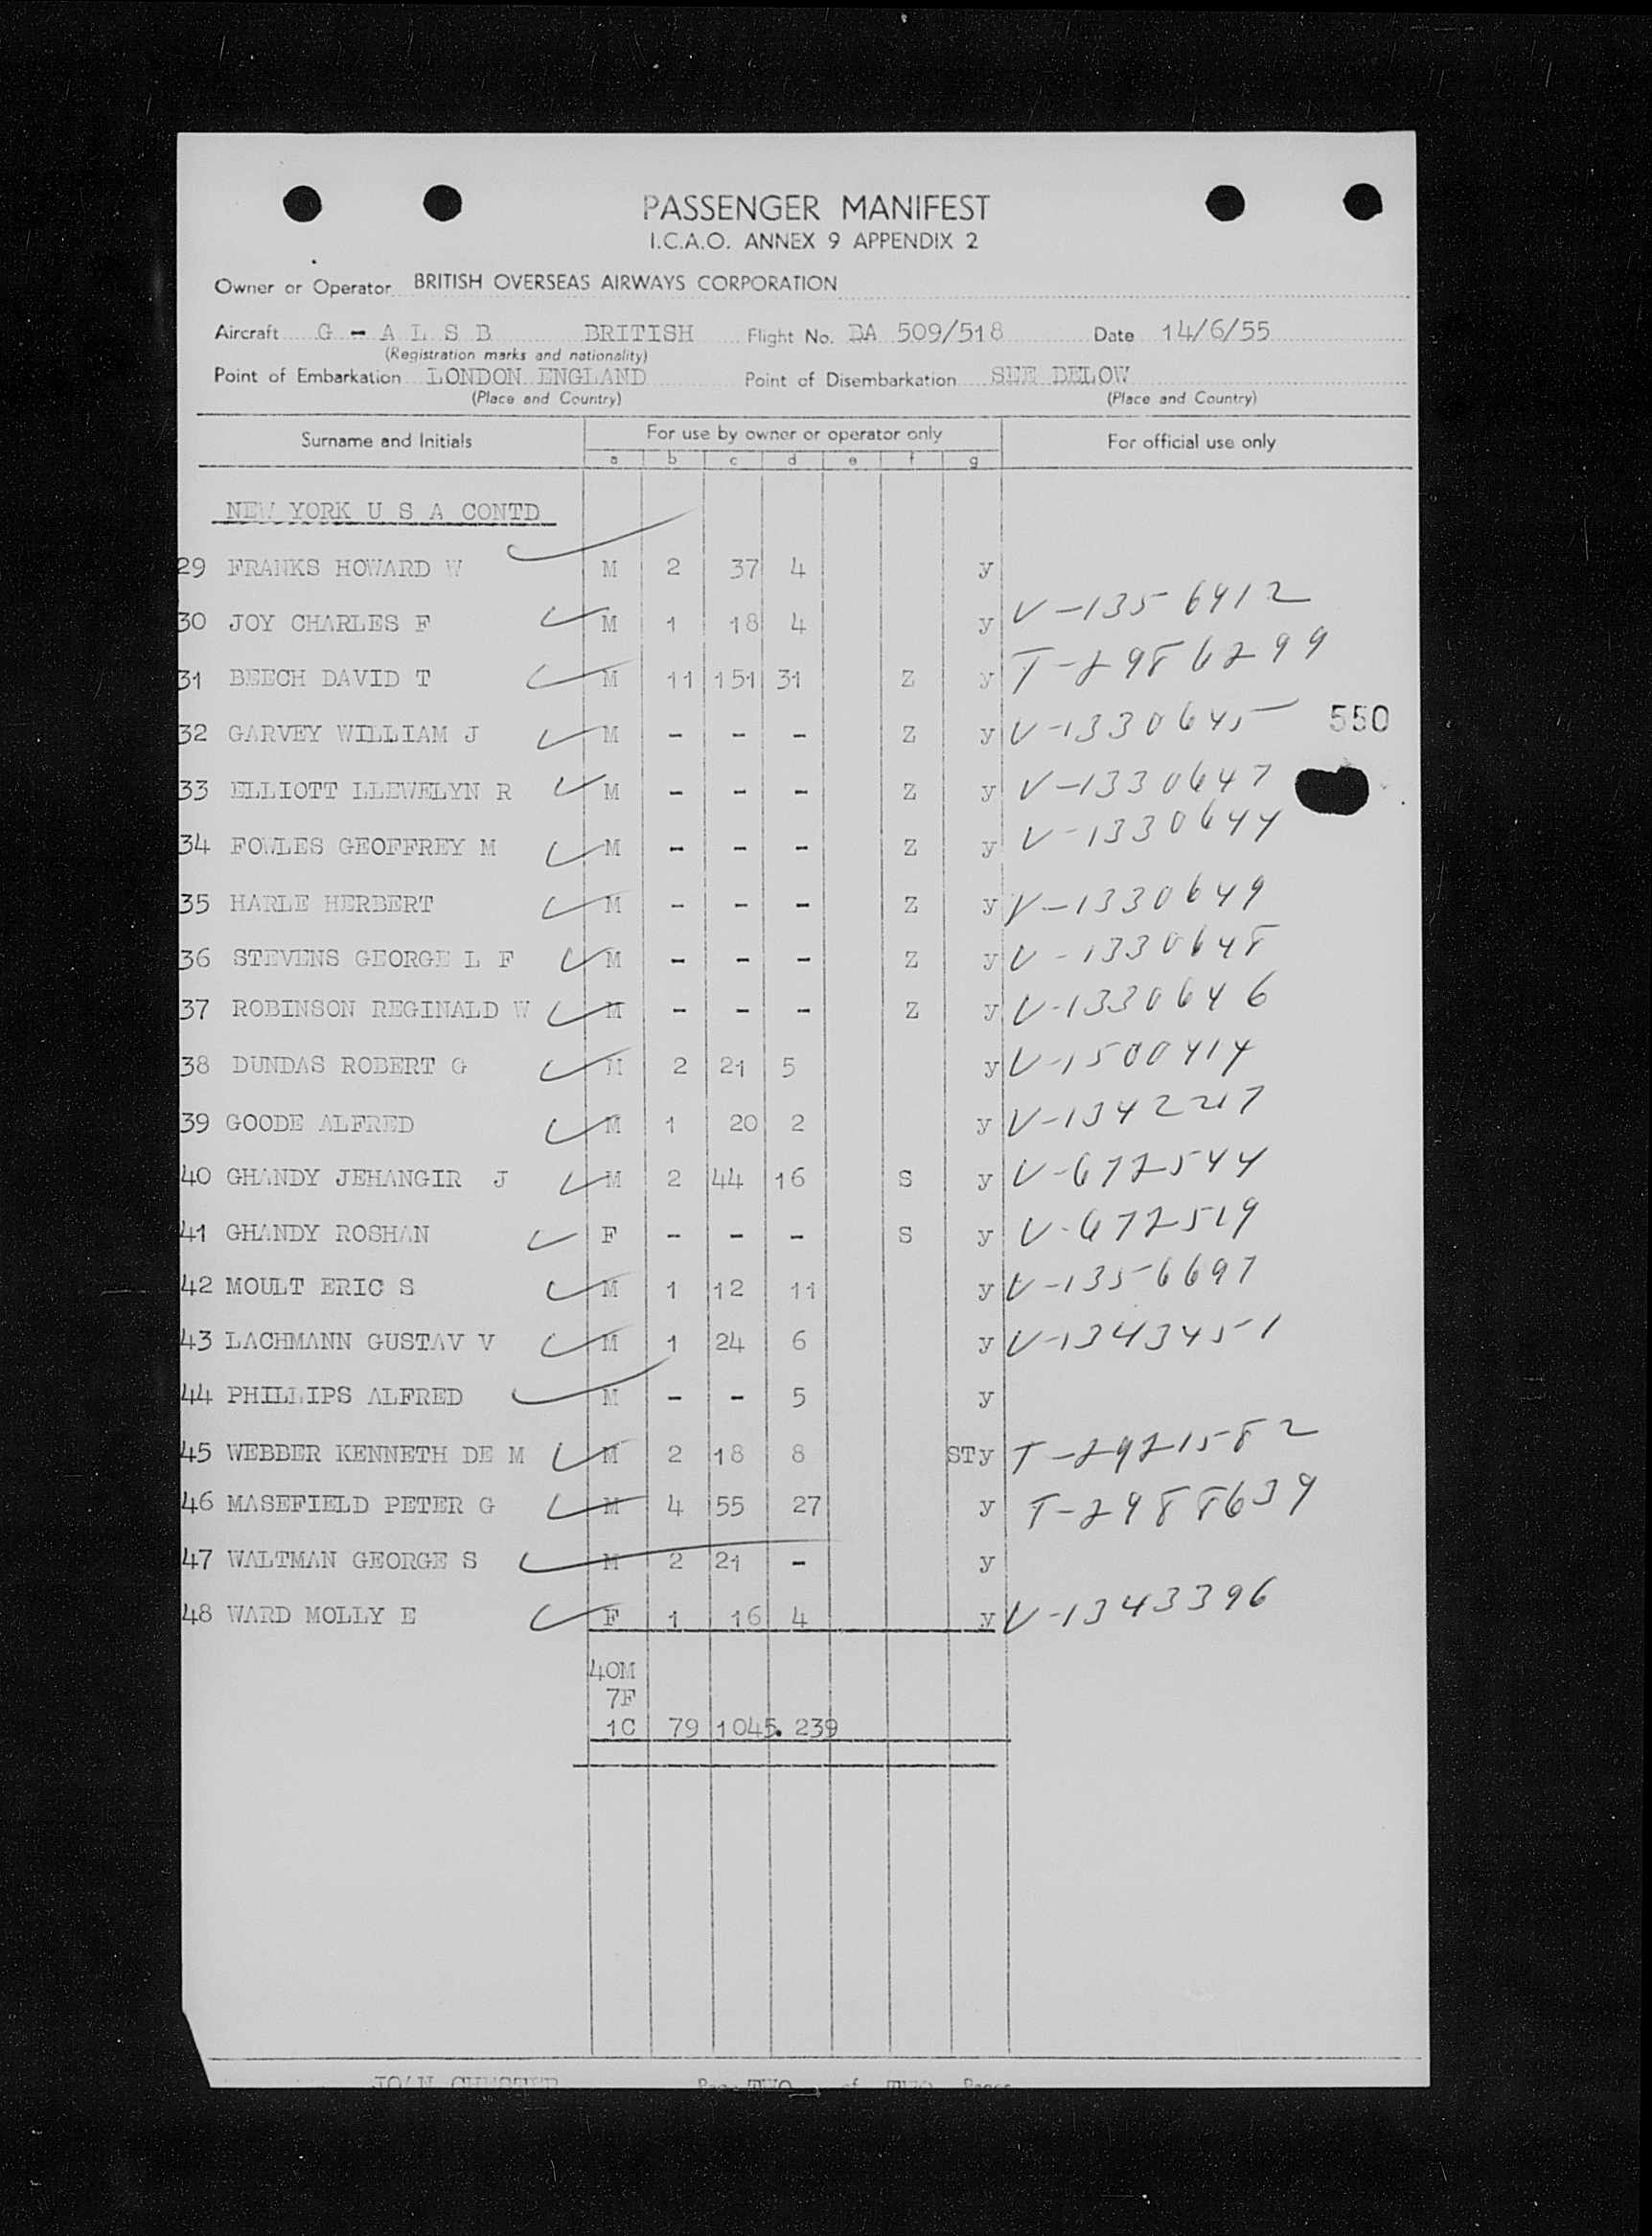 PASSENGER MANIFEST
I.C.A.O. ANNEX 9 APPENDIX 2
Owner or Operator BRITISH OVERSEAS AIRWAYS CORPORATION
Aircraft G - A L S B BRITISH Flight No. BA 509/518 Date 14/6/55
(Registration marks and nationality)
Point of Embarkation LONDON ENGLAND Point of Disembarkation SEE BELOW
(Place and Country) (Place and Country)
Surname and Initials For use by owner or operator only For official use only
a b c d e f g
NEW YORK U S A CONTD
29 FRANKS HOWARD W M 2 37 4 y
30 JOY CHARLES F M 1 18 4 y V-1356412
31 BEECH DAVID T M 11 151 31 Z y T-2986299
32 GARVEY WILLIAM J M - - - Z y V-1330645 550
33 ELLIOTT LLEWELYN R M - - - Z y V-1330647
34 FOWLES GEOFFREY M M - - - Z y V-1330644
35 HARLE HERBERT M - - - Z y V-1330649
36 STEVENS GEORGE L F M - - - Z y V-1330648
37 ROBINSON REGINALD W M - - - Z y V-1330646
38 DUNDAS ROBERT G M 2 21 5 y V-1500414
39 GOODE ALFRED M 1 20 2 y V-1342217
40 GHANDY JEHANGIR J M 2 44 16 S y V-672544
41 GHANDY ROSHAN F - - - S y V-672519
42 MOULT ERIC S M 1 12 11 y V-1356697
43 LACHMANN GUSTAV V M 1 24 6 y V-1343451
44 PHILLIPS ALFRED M - - 5 y
45 WEBBER KENNETH DE M M 2 18 8 STy T-2921582
46 MASEFIELD PETER G M 4 55 27 y T-2988639
47 WALTMAN GEORGE S M 2 21 - y
48 WARD MOLLY E F 1 16 4 y V-1343396
40M
7F
1C 79 1045. 239
JOAN CHESTER Page TWO of TWO Pages